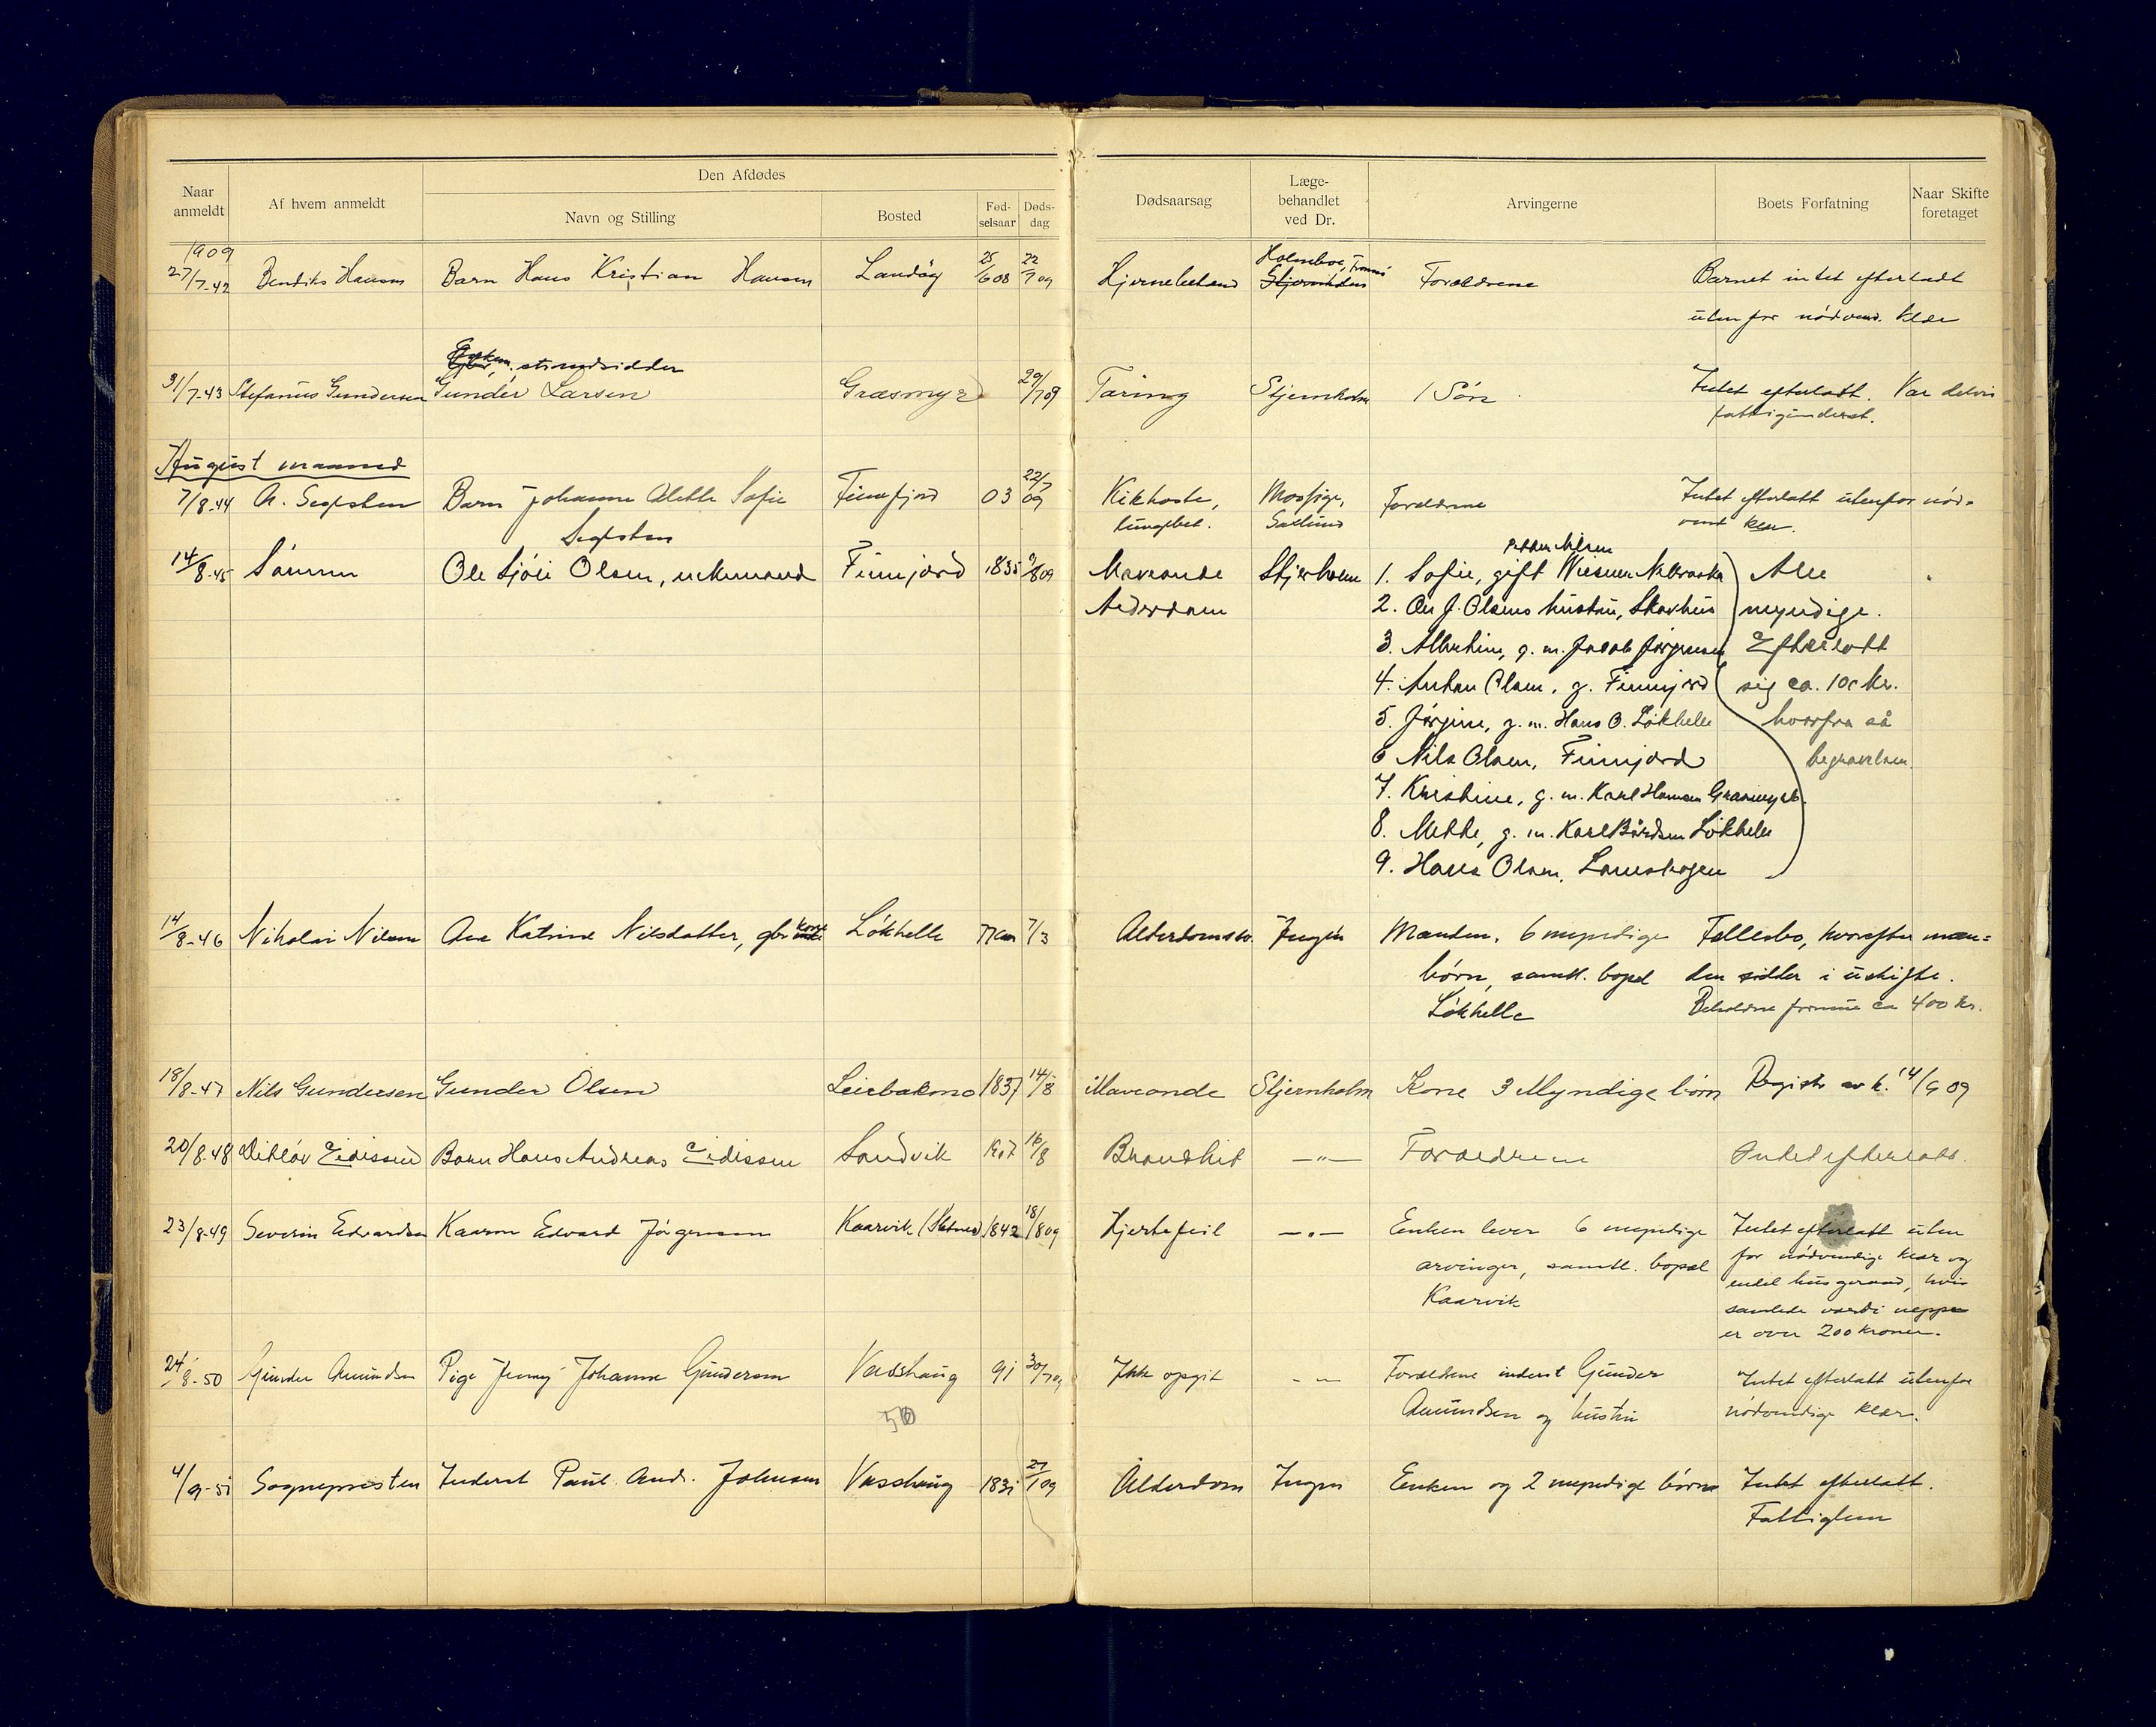 Naar anmeldt
Af hvem anmeldt
Den Afdødes
Navn og Stilling
Bosted
Fød-selsaar
Døds-dag
Dødsaarsag
Læge-behandlet ved Dr.
Arvingerne
Boets Forfatning
Naar Skifte foretaget
1909
27/7-42 Bendiks Hansen Barn Hans Kristian Hansen Landøy 25/6 08 22/7 09 Hjernebetænd Holmboe, Tromsø Stjernholm Forældrene Barnet intet efterladt
uten for nødvend. klær
strandsidder
31/7-43 Stefanus Gundersen Gunder Larsen Græsmyr 29/7 09 Tæring Stjernholm 1 Søn Intet efterlatt. Var delvis
fattigunderst.
August maaned
7/8-44 A. Segsten Barn Johanne Alette Sofie Finnfjord 03 22/7 09 Kikhoste, Forældrene Intet efterlatt utenfor nød-
Segsten lungebet. klær.
Petter Nilsen
14/8-45 Sønnen Ole Sjöli Olsen, enkemand Finnjord 1835 9/8 09 Mavesonde Stjerholm 1. Sofie, gift Wisner Nebraska Alle
Alderdom 2. On J. Olsens hustru, Skarhus myndige.
3. Albertine, g. m. Jacob Jørgensen Efterlatt
4. Anton Olsen, g. Finnjord sig ca. 100 kr.
5. Jørgine, g. m. Hans O. Løkhelle hvorfra så
6 Nils Olsen, Finnjord begravelsen
7. Kristine, g. m. Karl Hansen Græsmyr
8. Mette, g. m. Karl Bårdsen Løkhelle
9. Hans Olsen,
14/8-46 Nikolai Nilsen Ane Katrine Nilsdatter, gbr kone Løkhelle 77 aar 7/3 Alderdomssv. Ingen Manden, 6 myndige Fællesbo, hvorefter man=
børn, samtl. bopæl den sidder i uskifte.
Løkhelle Beholdne formue ca 400 kr.
18/8-47 Nils Gundersen Gunder Olsen Leiebakmo 1837 14/8 Mavesonde Stjernholm Kone 3 Myndige børn Registr av k. 14/9 09
20/8-48 Ditløv Eidissen Barn Hans Andreas Eidissen Sandvik 1907 16/8 Bronchit —"— Forældrene Intet efterlatt.
23/8-49 Severin Edvardsen Kaarm Edvard Jørgensen Kaarvik 1842 18/8 09 Hjertefeil —"— Enken lever 6 myndige Intet efterlatt uten
arvinger, samtl. bopæl for nødvendige klær og
Kaarvik endel husgeraad, hvis
samlede værdi neppe
er over 200 kroner.
24/8-50 Gunder Amundsen Pige Jenny Johanne Gundersen Vasshaug 91 30/7 09 Ikke opgit - " - Forældrene inderst Gunder Intet efterlatt utenfor
50 Amundsen og hustru nødvendige klær.
4/9-51 Sognepresten Inderst Paul And. Johnsen Vasshaug 1831 27/7 09 Alderdom Ingen Enken og 2 myndige børn Intet efterlatt.
Fattiglem